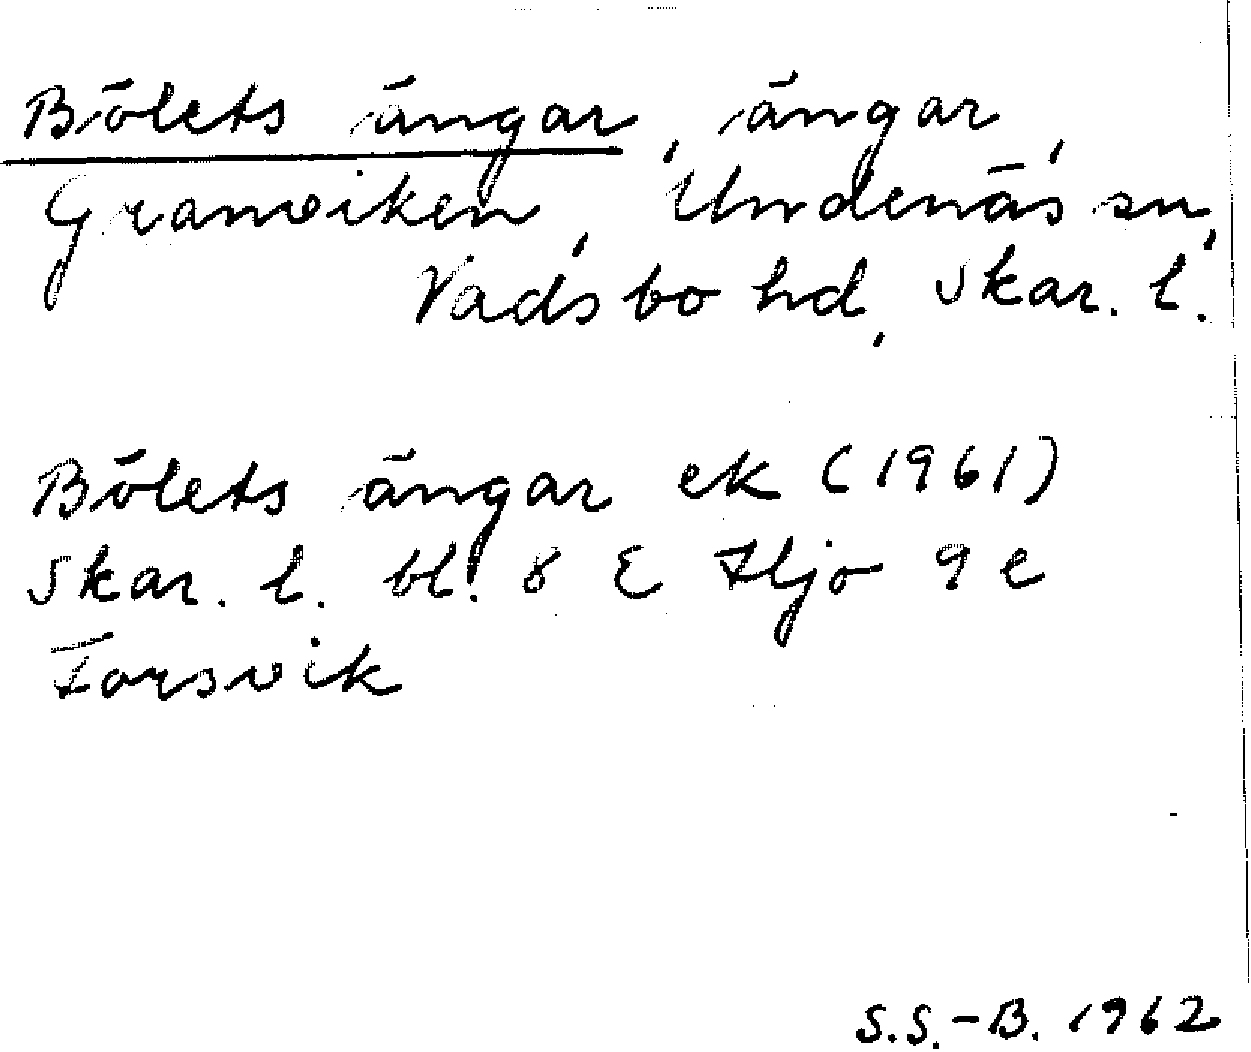 Bölets ängar, ängar,
Granviken, Undenäs sn,
Vadsbo hd, Skar. l.
Bölets ängar ek (1961)
Skar. l. bl. 8 E Hjo 9 e
Forsvik
S.S.-B. 1962